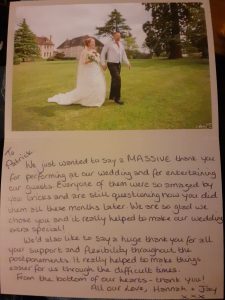 To
Patrick
We just wanted to say a MASSIVE thank you
for performing at our wedding and for entertaining
our guests. Everyone of them were so amazed by
you tricks and are still questioning how you did
them all these months later. We are so glad we
chose you and it really helped to make our wedding
extra special!
We'd also like to say a huge thank you for all
your support and flexibility throughout the
postponements. It really helped to make things
easier for us through the difficult times.
From the bottom of our hearts - thank you!
All our love, Hannah + Jay
x x x